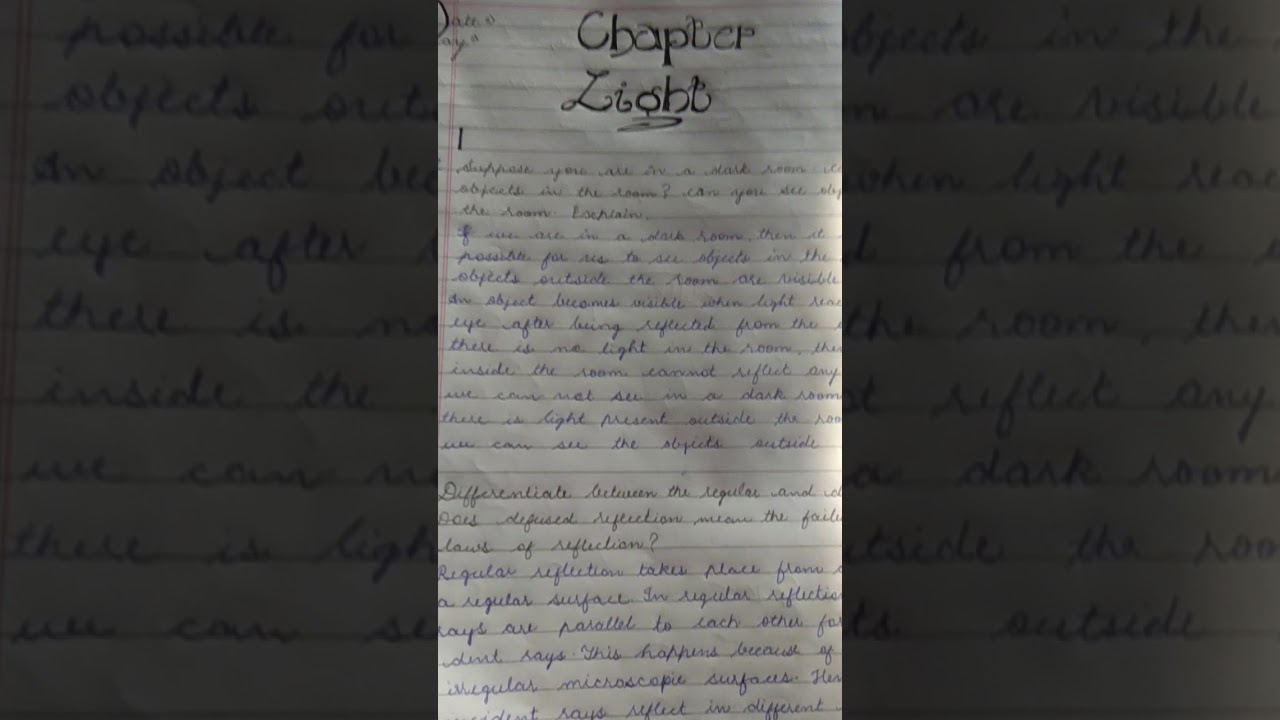 Date :)
Day "
Chapter
Light
1
Suppose you are in a dark room
objects in the room? can you see obj
the room. Exchlain.
If we are in a dark room, then it
possible for us to see objects in the
objects outside the room are visible
An object becomes visible when light reac
eye after being reflected from the
there is no light in the room, the
inside the room cannot reflect any
we can not see in a dark room
there is light present outside the roo
we can see the objects outside
Differentiate between the regular and
Does defused reflection mean the faile
laws of reflection?
Regular reflection takes place from
a regular surface. In regular reflectio
rays are parallel to each other for
ident rays. This happens because of
irregular microscopic surfaces. Hen
incident rays reflect in different